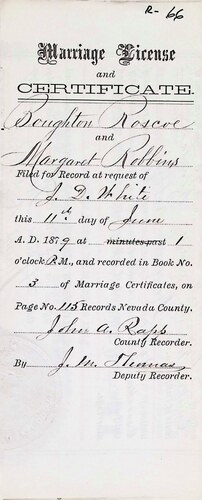 R-66
Marriage License
and
CERTIFICATE.
Boughton Roscoe
and
Margaret Robbins
Filed for Record at request of
J. D. White
this 11th day of June
A. D. 1879 at minutes past 1
o'clock P.M., and recorded in Book No.
3 of Marriage Certificates, on
Page No. 115 Records Nevada County.
John A. Rapp
County Recorder.
By J. M. Thomas
Deputy Recorder.